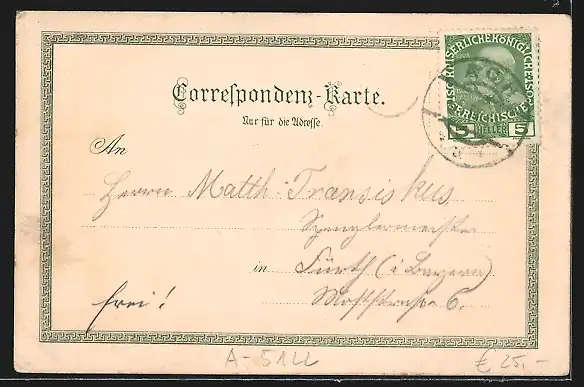 Correspondenz-Karte.
Nur für die Adresse.
KAISERLICHE KÖNIGLICHE ÖSTERREICHISCHE POST
5 HELLER 5
An
Herrn Matth. Transiskus
Spenglermeister
in Fürth (i. Bayern).
frei!
A-5122
€ 25,-